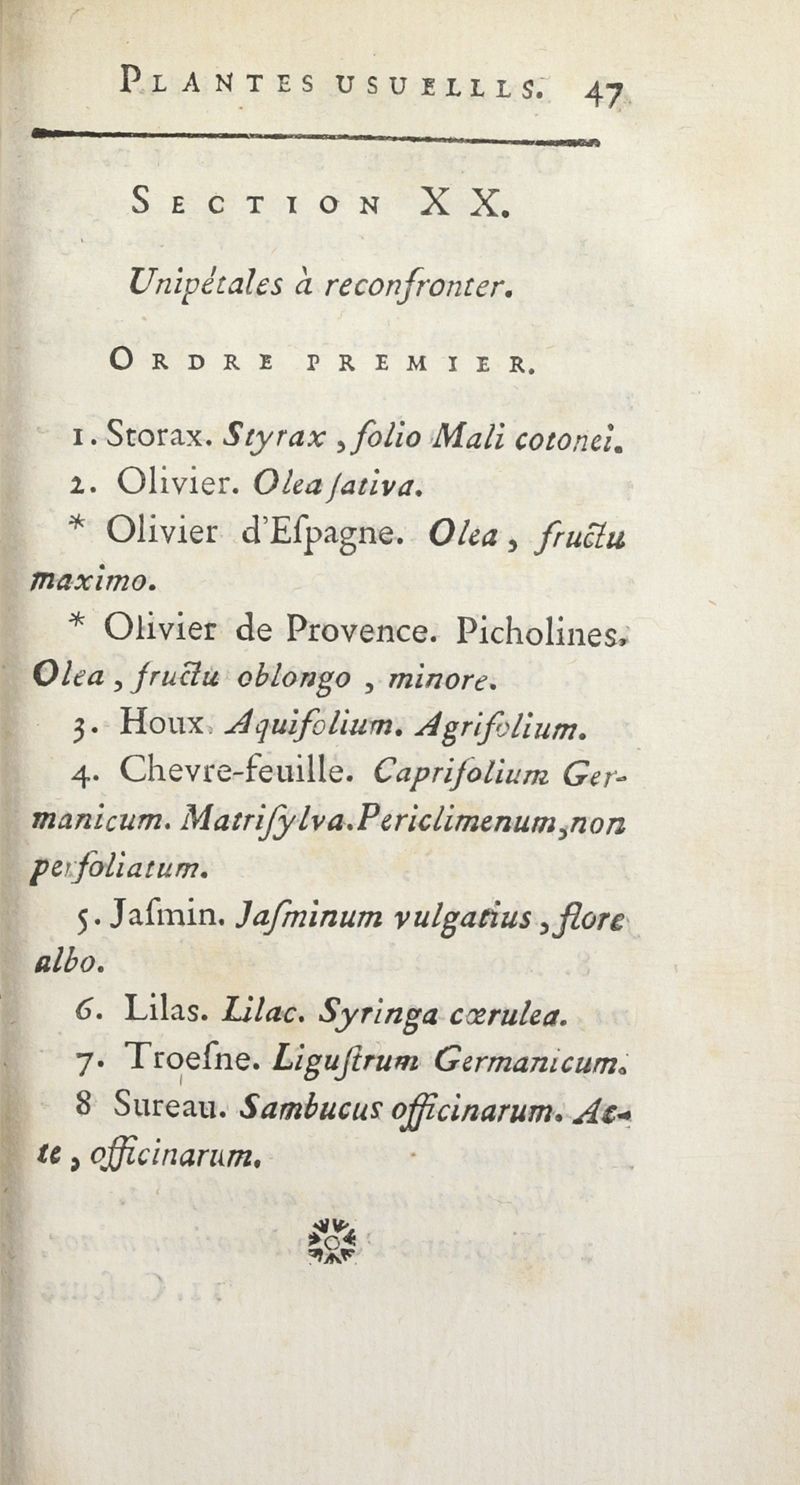 PLANTES USUELLLS. 47
SECTION XX.
Unipétales à reconfronter.
ORDRE PREMIER.
1. Storax. Styrax, folio Mali cotonei.
2. Olivier. Olea ſativa.
* Olivier d'Eſpagne. Olea, fructu
maximo.
* Olivier de Provence. Picholines,
Olea, fructu oblongo, minore.
3. Houx. Aquifolium. Agrifolium.
4. Chevre-feuille. Caprifolium Ger-
manicum. Matriſylva. Periclimenum, non
perfoliatum.
5. Jaſmin. Jaſminum vulgatius, flore
albo.
6. Lilas. Lilac. Syringa cærulea.
7. Troeſne. Liguſtrum Germanicum.
8 Sureau. Sambucus officinarum. Ac-
te, officinarum.